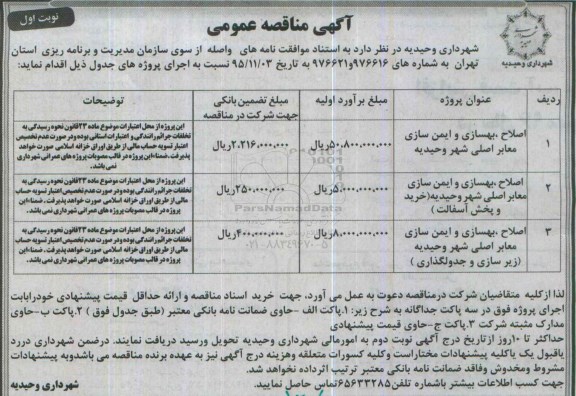 آگهی مناقصه عمومی
نوبت اول
شهرداری وحیدیه
شهرداری وحیدیه در نظر دارد به استناد موافقت نامه های واصله از سوی سازمان مدیریت و برنامه ریزی استان
تهران به شماره های ۹۷۶۶۱۶و۹۷۶۶۲۱ به تاریخ ۹۵/۱۱/۰۳ نسبت به اجرای پروژه های جدول ذیل اقدام نماید:
ردیف عنوان پروژه مبلغ برآورد اولیه مبلغ تضمین بانکی جهت شرکت در مناقصه توضیحات
۱
اصلاح ،بهسازی و ایمن سازی
معابر اصلی شهر وحیدیه
۵۰،۸۰۰،۰۰۰،۰۰۰ریال
۲،۲۱۶،۰۰۰،۰۰۰ریال
این پروژه از محل اعتبارات موضوع ماده ۲۳قانون نحوه رسیدگی به
تخلفات جرائم رانندگی و اعتبارات استانی بوده ودر صورت عدم تخصیص
اعتبار تسویه حساب مالی از طریق اوراق خزانه اسلامی صورت خواهد
پذیرفت .ضمنا این پروژه در قالب مصوبات پروژه های عمرانی شهرداری
نمی باشد.
۲
اصلاح ،بهسازی و ایمن سازی
معابر اصلی شهر وحیدیه(خرید
و پخش آسفالت )
۵،۰۰۰،۰۰۰،۰۰۰ریال
۲۵۰،۰۰۰،۰۰۰ریال
این پروژه از محل اعتبارات موضوع ماده ۲۳قانون نحوه رسیدگی به
تخلفات جرائم رانندگی بوده ودر صورت عدم تخصیص اعتبار تسویه حساب
مالی از طریق اوراق خزانه اسلامی صورت خواهد پذیرفت .ضمنا این
پروژه در قالب مصوبات پروژه های عمرانی شهرداری نمی باشد.
۳
اصلاح ،بهسازی و ایمن سازی
معابر اصلی شهر وحیدیه
(زیر سازی و جدولگذاری )
۸،۰۰۰،۰۰۰،۰۰۰ریال
۴۰۰،۰۰۰،۰۰۰ریال
این پروژه از محل اعتبارات موضوع ماده ۲۳قانون نحوه رسیدگی به
تخلفات جرائم رانندگی بوده ودر صورت عدم تخصیص اعتبار تسویه حساب
مالی از طریق اوراق خزانه اسلامی صورت خواهد پذیرفت .ضمنا این
پروژه در قالب مصوبات پروژه های عمرانی شهرداری نمی باشد.
ParsNamadData
۰۲۱-۸۸۳۴۹۶۷۰-۵
لذا ازکلیه متقاضیان شرکت درمناقصه دعوت به عمل می آورد، جهت خرید اسناد مناقصه و ارائه حداقل قیمت پیشنهادی خودرابابت
اجرای پروژه فوق در سه پاکت جداگانه به شرح زیر: ۱.پاکت الف -حاوی ضمانت نامه بانکی معتبر (طبق جدول فوق ) ۲.پاکت ب-حاوی
مدارک مثبته شرکت ۳.پاکت ج-حاوی قیمت پیشنهادی
حداکثر تا ۱۰روز ازتاریخ درج آگهی نوبت دوم به امورمالی شهرداری وحیدیه تحویل ورسید دریافت نمایند. درضمن شهرداری دررد
یاقبول یک یاکلیه پیشنهادات مختاراست وکلیه کسورات متعلقه وهزینه درج آگهی نیز به عهده برنده مناقصه می باشدوبه پیشنهادات
مشروط ومخدوش وفاقد ضمانت نامه بانکی معتبر ترتیب اثرداده نخواهد شد.
جهت کسب اطلاعات بیشتر باشماره تلفن۶۵۶۳۳۲۸۵تماس حاصل نمایید.
شهرداری وحیدیه